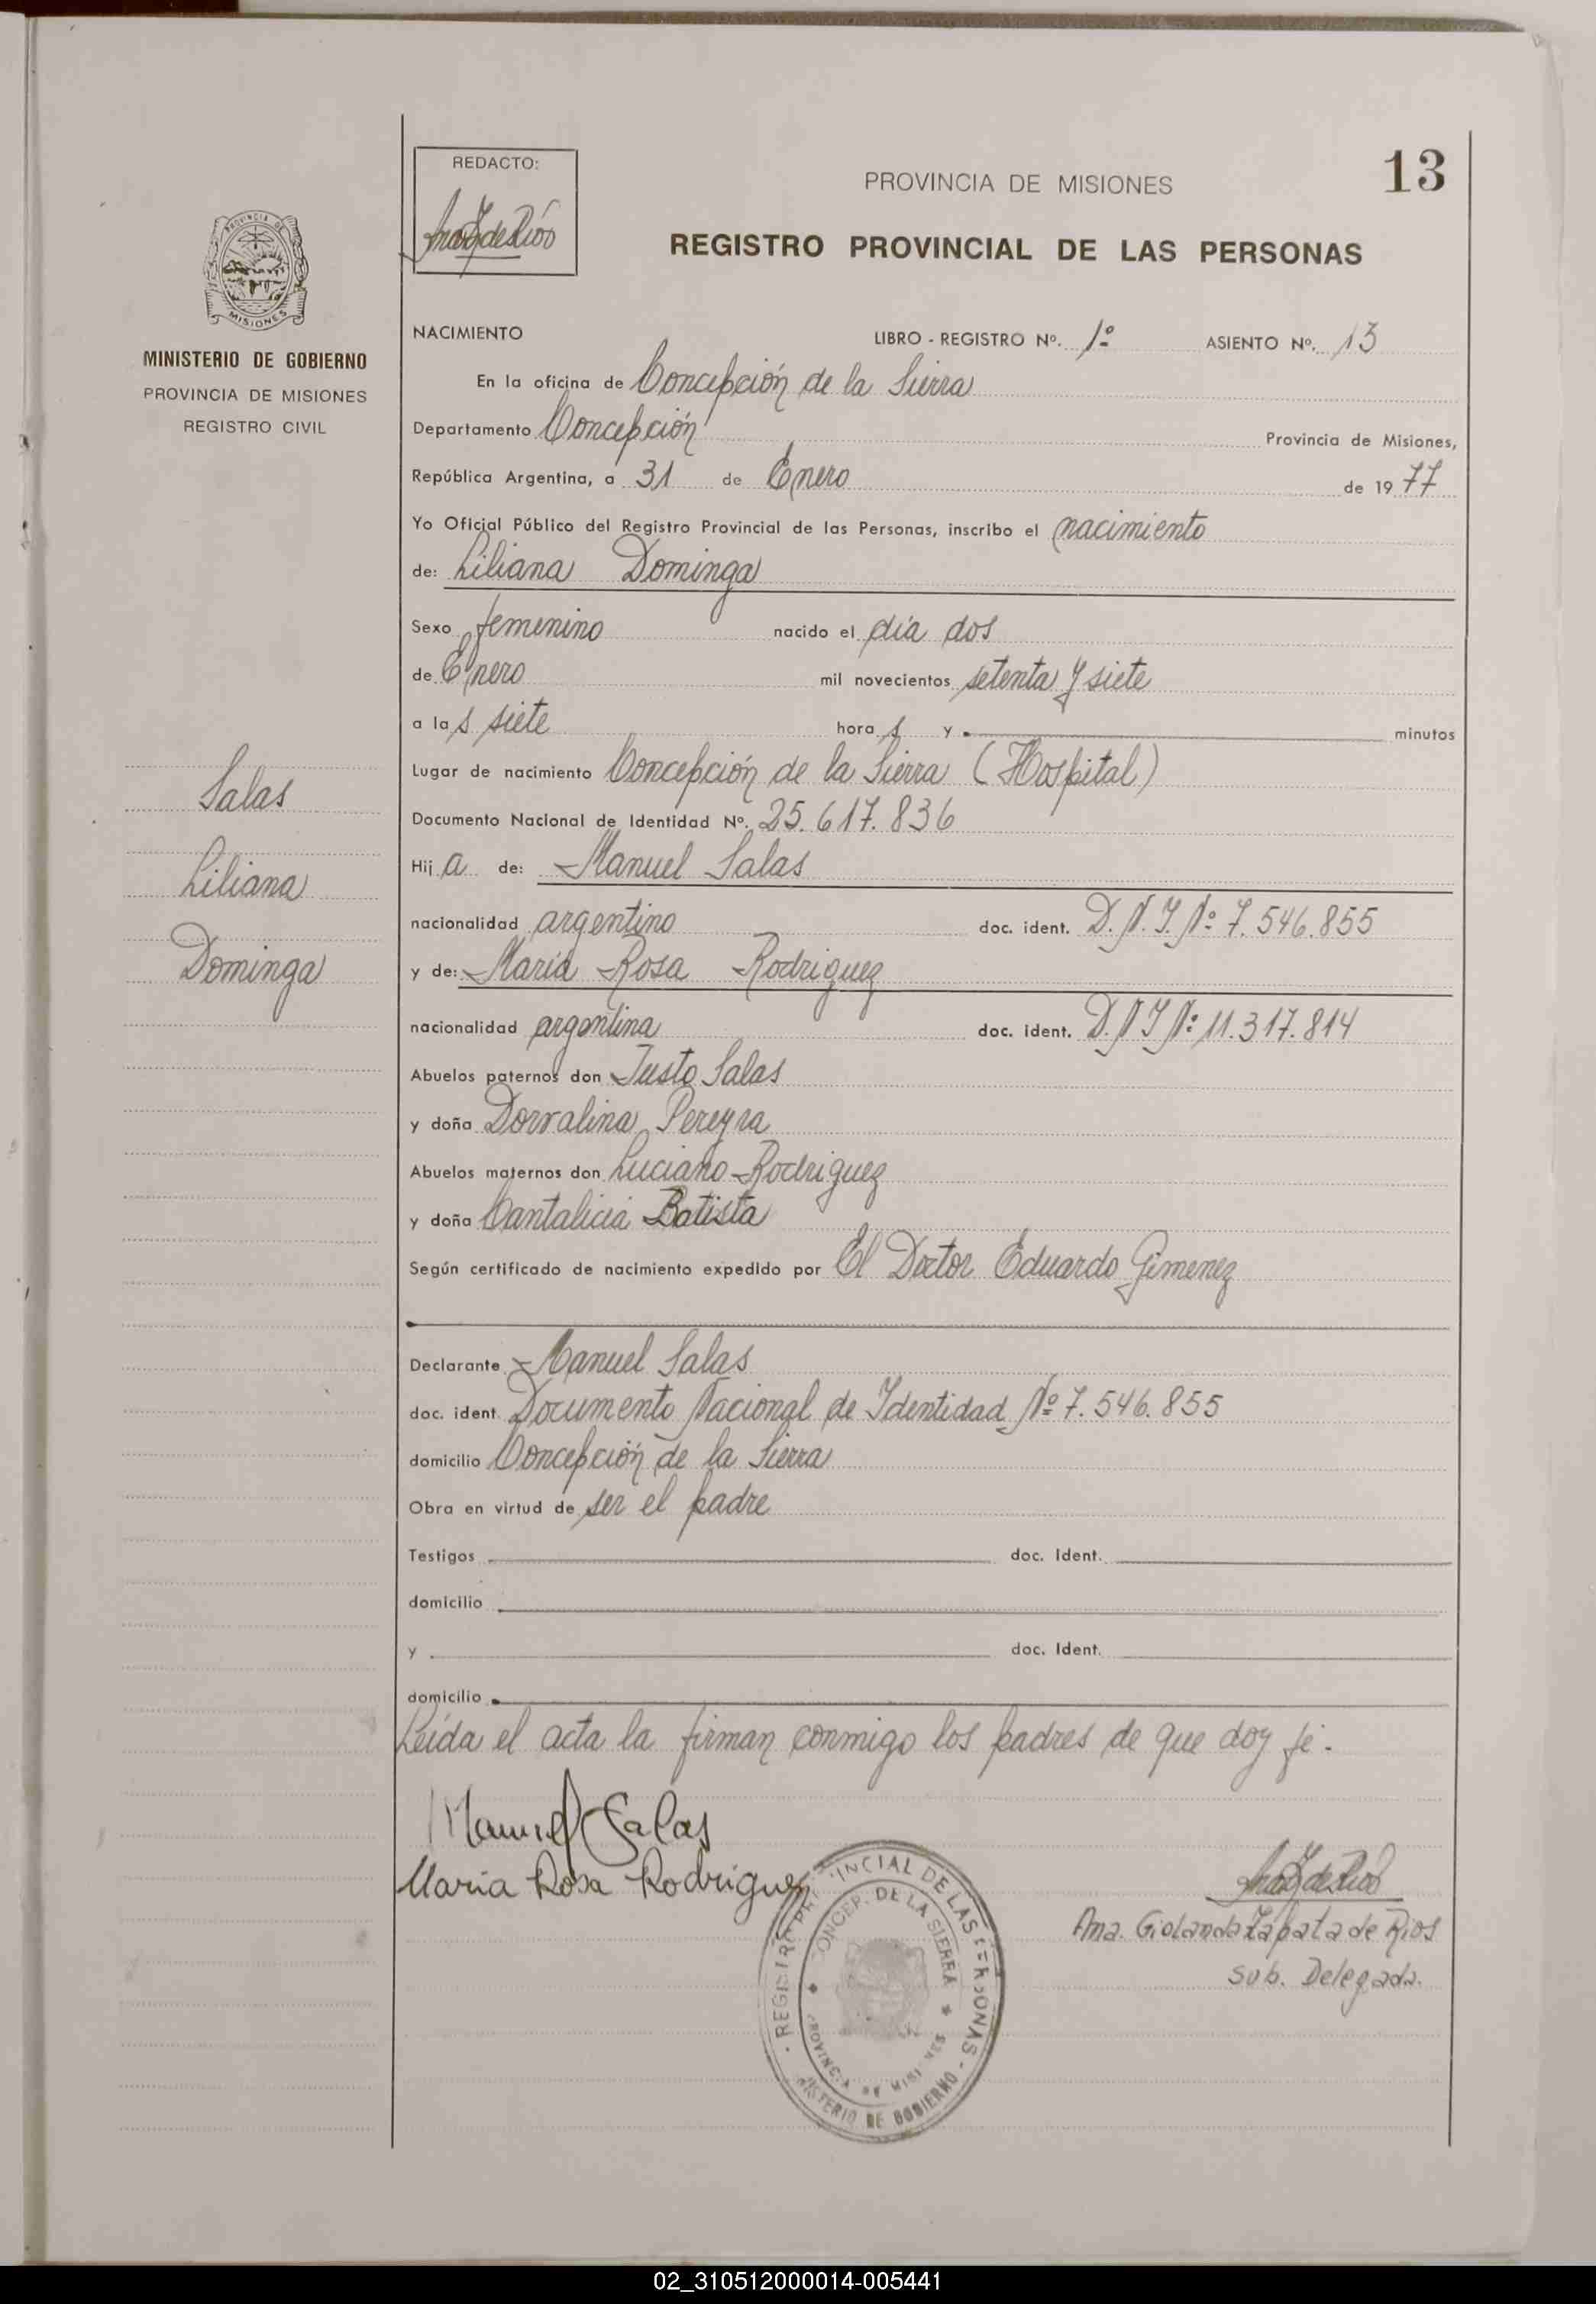 13
REDACTO:
PROVINCIA DE MISIONES
REGISTRO PROVINCIAL DE LAS PERSONAS
PROVINCIA DE
MISIONES
MINISTERIO DE GOBIERNO
PROVINCIA DE MISIONES
REGISTRO CIVIL
Salas
Liliana
Dominga
NACIMIENTO LIBRO - REGISTRO Nº. 1º ASIENTO Nº. 13
En la oficina de Concepción de la Sierra
Departamento Concepción Provincia de Misiones,
República Argentina, a 31 de Enero de 1977
Yo Oficial Público del Registro Provincial de las Personas, inscribo el nacimiento
de: Liliana Dominga
Sexo femenino nacido el día dos
de Enero mil novecientos setenta y siete
a las siete horas y minutos
Lugar de nacimiento Concepción de la Sierra (Hospital)
Documento Nacional de Identidad Nº. 25.617.836
Hija de: Manuel Salas
nacionalidad argentino doc. ident. D.N.I. Nº 7.546.855
y de: María Rosa Rodriguez
nacionalidad argentina doc. ident. D.N I Nº 11.317.814
Abuelos paternos don Justo Salas
y doña Dorvalina Pereyra
Abuelos maternos don Luciano Rodriguez
y doña Cantalicia Batista
Según certificado de nacimiento expedido por El Doctor Eduardo Gimenez
Declarante Manuel Salas
doc. ident. Documento Nacional de Identidad Nº 7.546.855
domicilio Concepción de la Sierra
Obra en virtud de ser el padre
Testigos doc. Ident.
domicilio
y doc. Ident.
domicilio
Leída el acta la firman conmigo los padres de que doy fé.
Manuel Salas
Maria Rosa Rodriguez
Ana. Giolanda Zapata de Rios
Sub. Delegada.
REGISTRO PROVINCIAL DE LAS PERSONAS - MINISTERIO DE GOBIERNO
CONCEP. DE LA SIERRA
PROVINCIA DE MISIONES
02_310512000014-005441